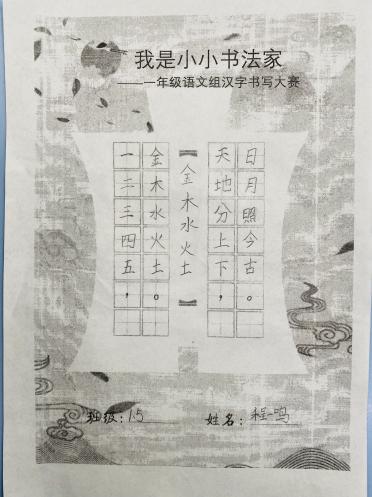 我是小小书法家
——一年级语文组汉字书写大赛
一二三四五，
金木水火土。
【金木水火土】
天地分上下，
日月照今古。
班级：1.5 姓名：程一鸣